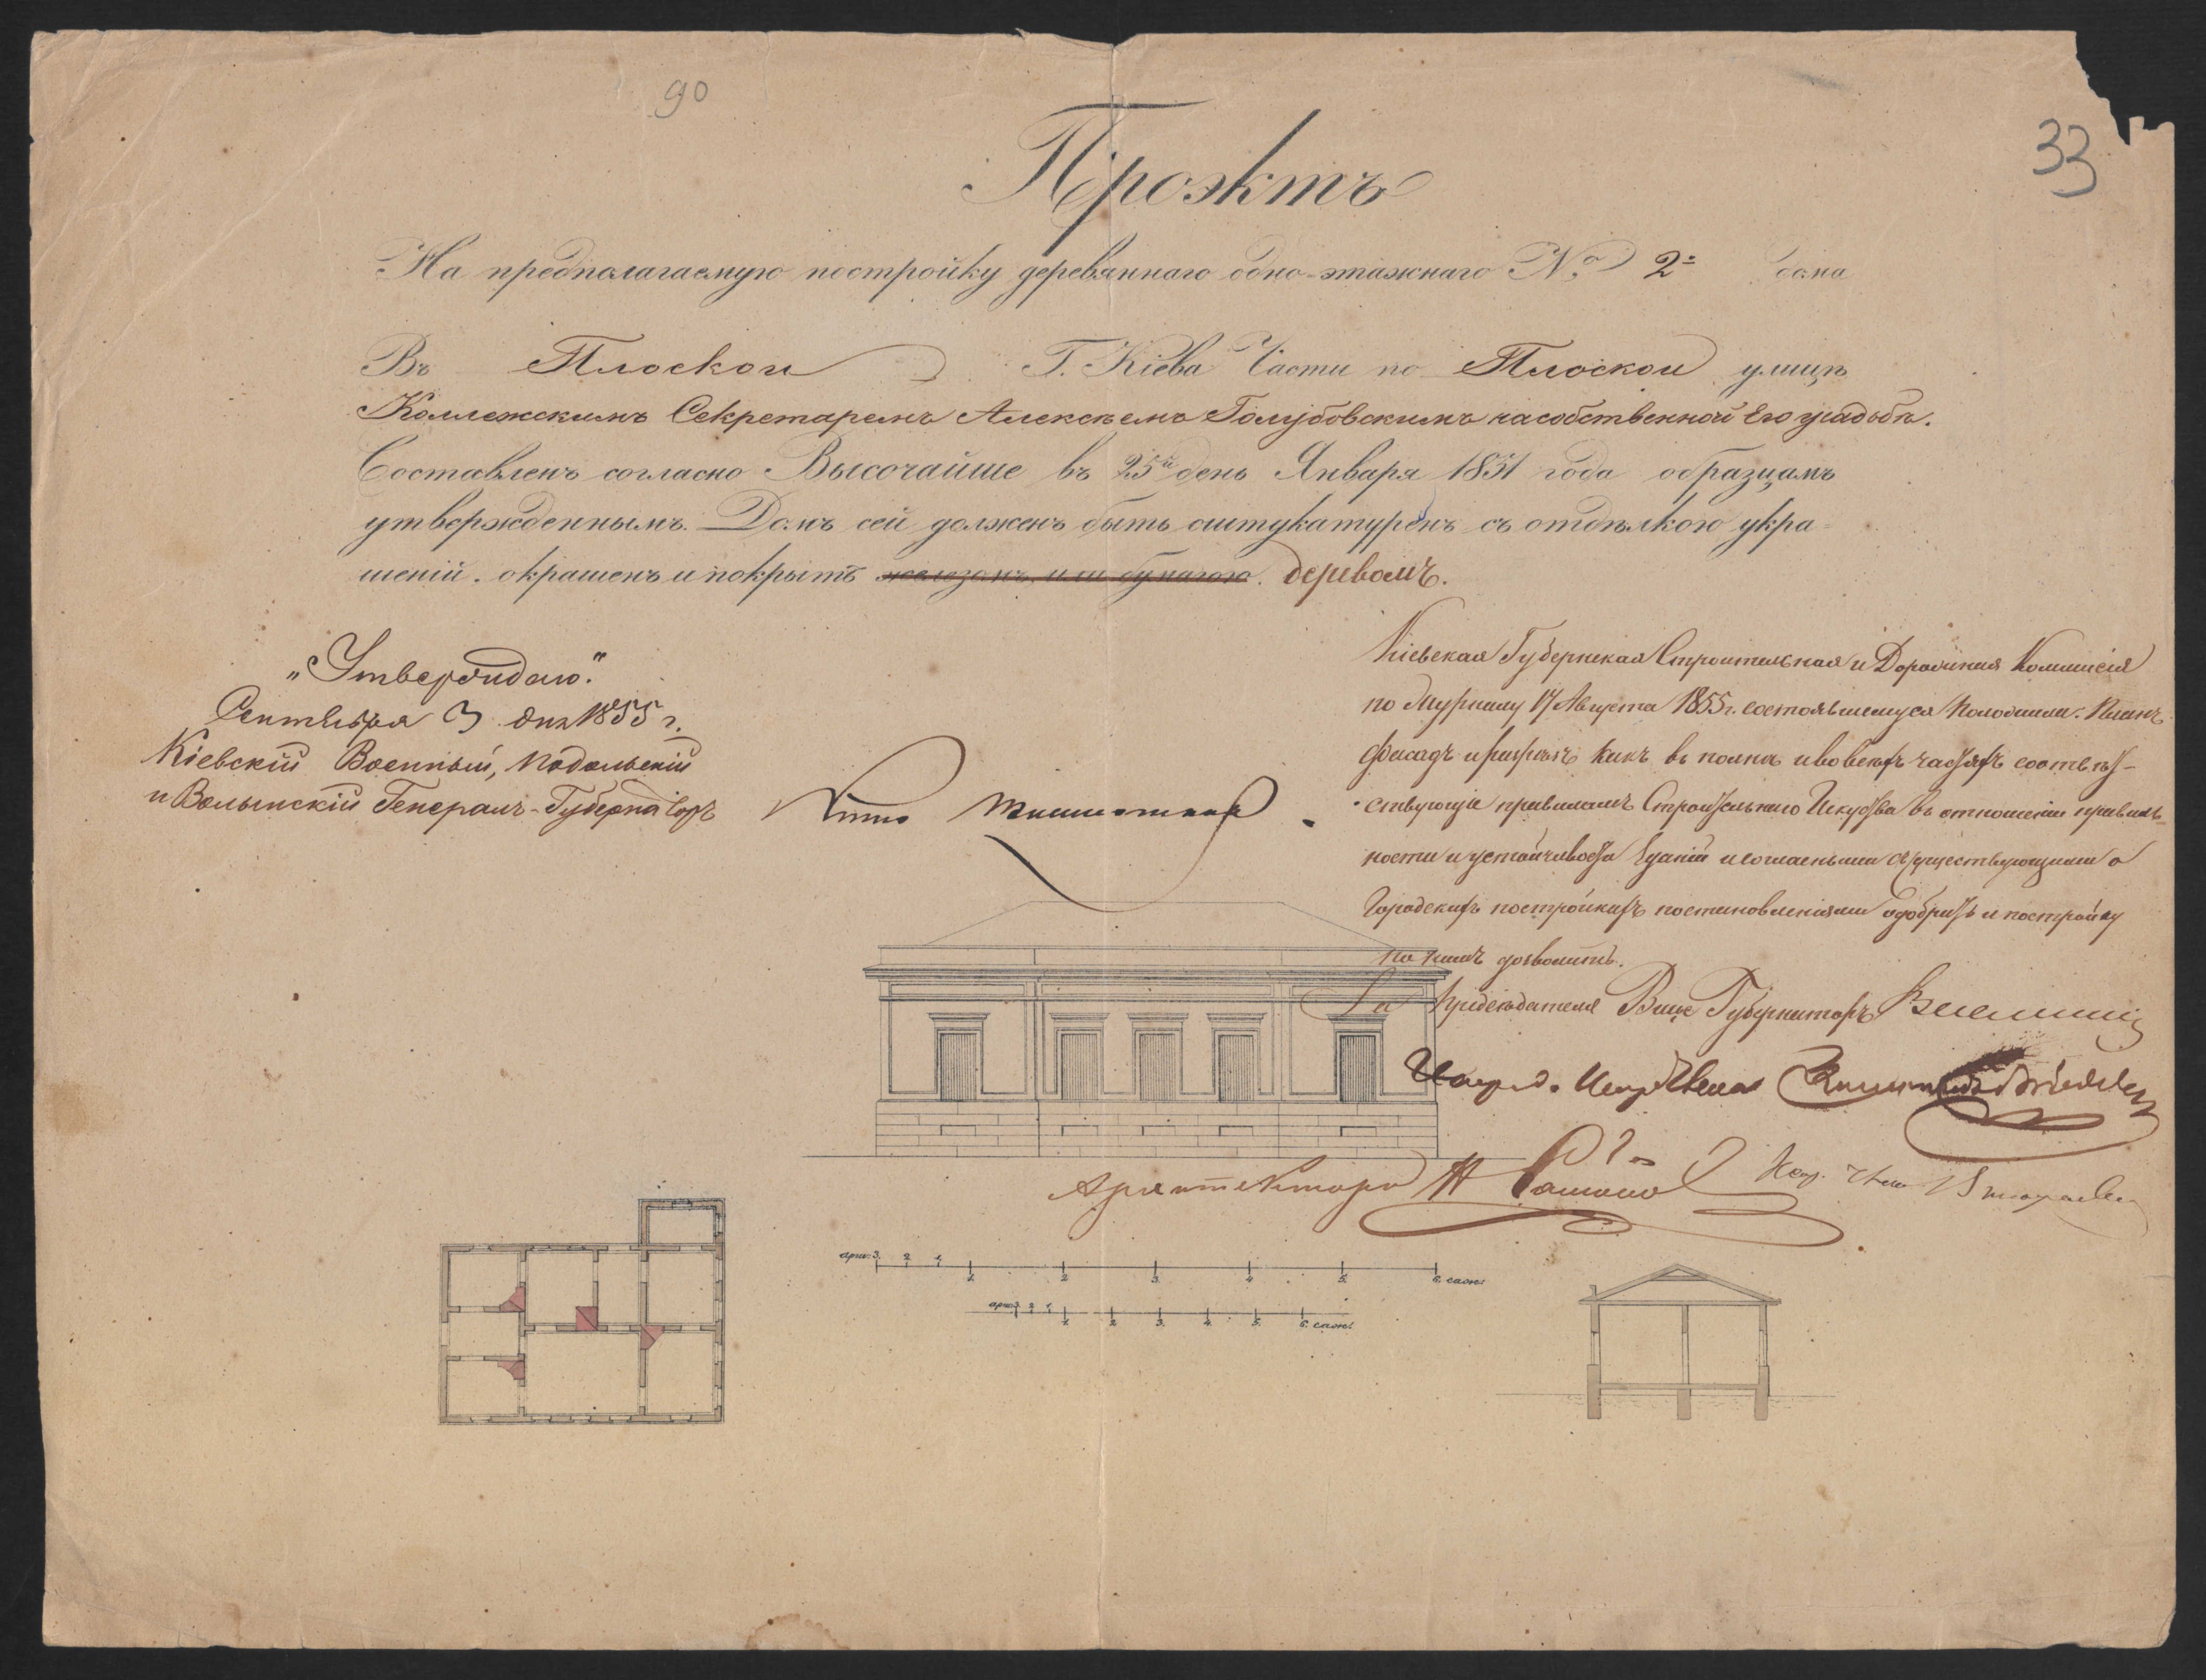 90
33
Проэктъ
На предполагаемую постройку деревяннаго одно-этажнаго № 2й дома
Въ Плоской Г. Кіева Части по Плоской улицѣ
Коллежскимъ Секретаремъ Алексѣемъ Голубовскимъ на собственной Его усадьбѣ.
Составленъ согласно Высочайше въ 25й день Января 1851 года образцамъ
утвержденнымъ. Домъ сей долженъ быть оштукатуренъ съ отдѣлкою укра-
шеній. окрашенъ и покрытъ желѣзомъ или бумагою. деревомъ.
„Утверждаю."
Сентября 3 дня 1855 г.
Кіевскій Военный, Подольскій
и Волынскій Генералъ-Губернаторъ
Кіевская Губернская Строительная и Дорожная Коммисія
по Журналу 17 Августа 1855 г. состоявшемуся Положила: Планъ
фасадъ и разрѣзъ какъ въ полнѣ и во всехъ частяхъ соотвѣт-
ствующіе правиламъ Строительнаго Искуства въ отношеніи правиль-
ности и устойчивости зданій и согласными съ существующими о
Городскихъ постройкахъ постановленіями одобрить и постройку
по нимъ дозволить.
За Предсѣдателя Вице Губернаторъ
Архитекторъ
арш: 3. 2. 1. 1. 2. 3. 4. 5. 6. саж:
арш: 3. 2. 1. 1. 2. 3. 4. 5. 6. саж: